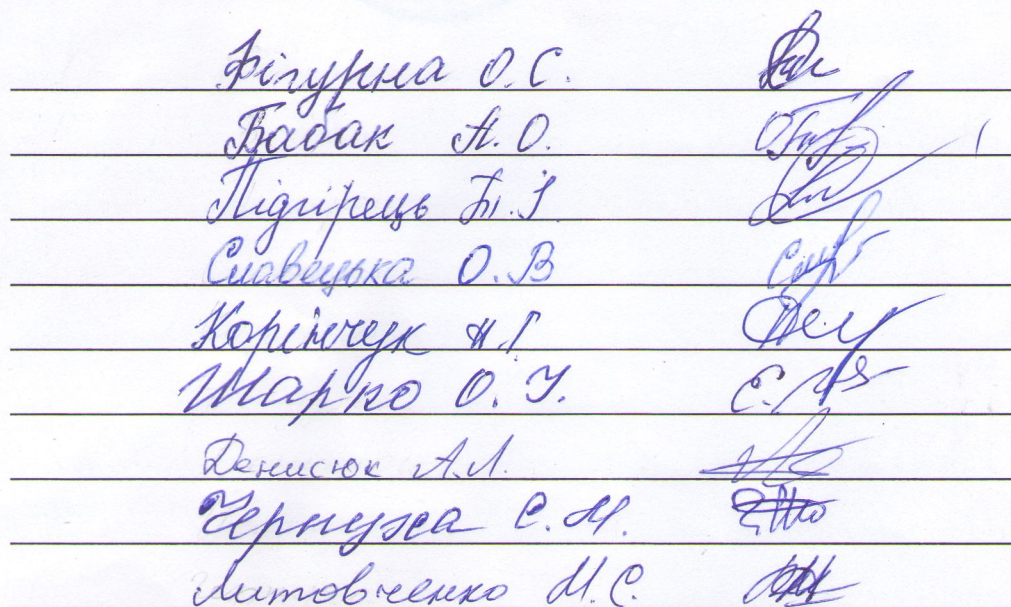 Фігурна О.С.
Бабак А.О.
Підгірець Т.І.
Славецька О.В
Корінчук Н.Г
Шарко О.І.
Денисюк А.Л.
Чернуха С.М.
Литовченко М.С.